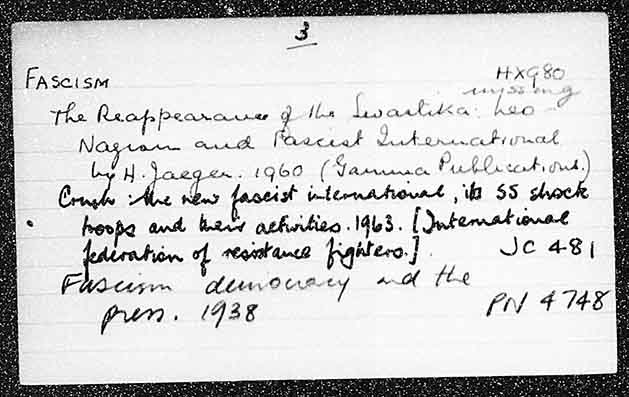 3
FASCISM HX980
missing
The Reappearance of the Swastika: neo
Nazism and Fascist International
by H. Jaeger. 1960 (Gamma Publications.)
Crush the new fascist international, its SS shock
troops and their activities. 1963. [International
federation of resistance fighters.] JC 481
Fascism democracy and the
press. 1938 PN 4748